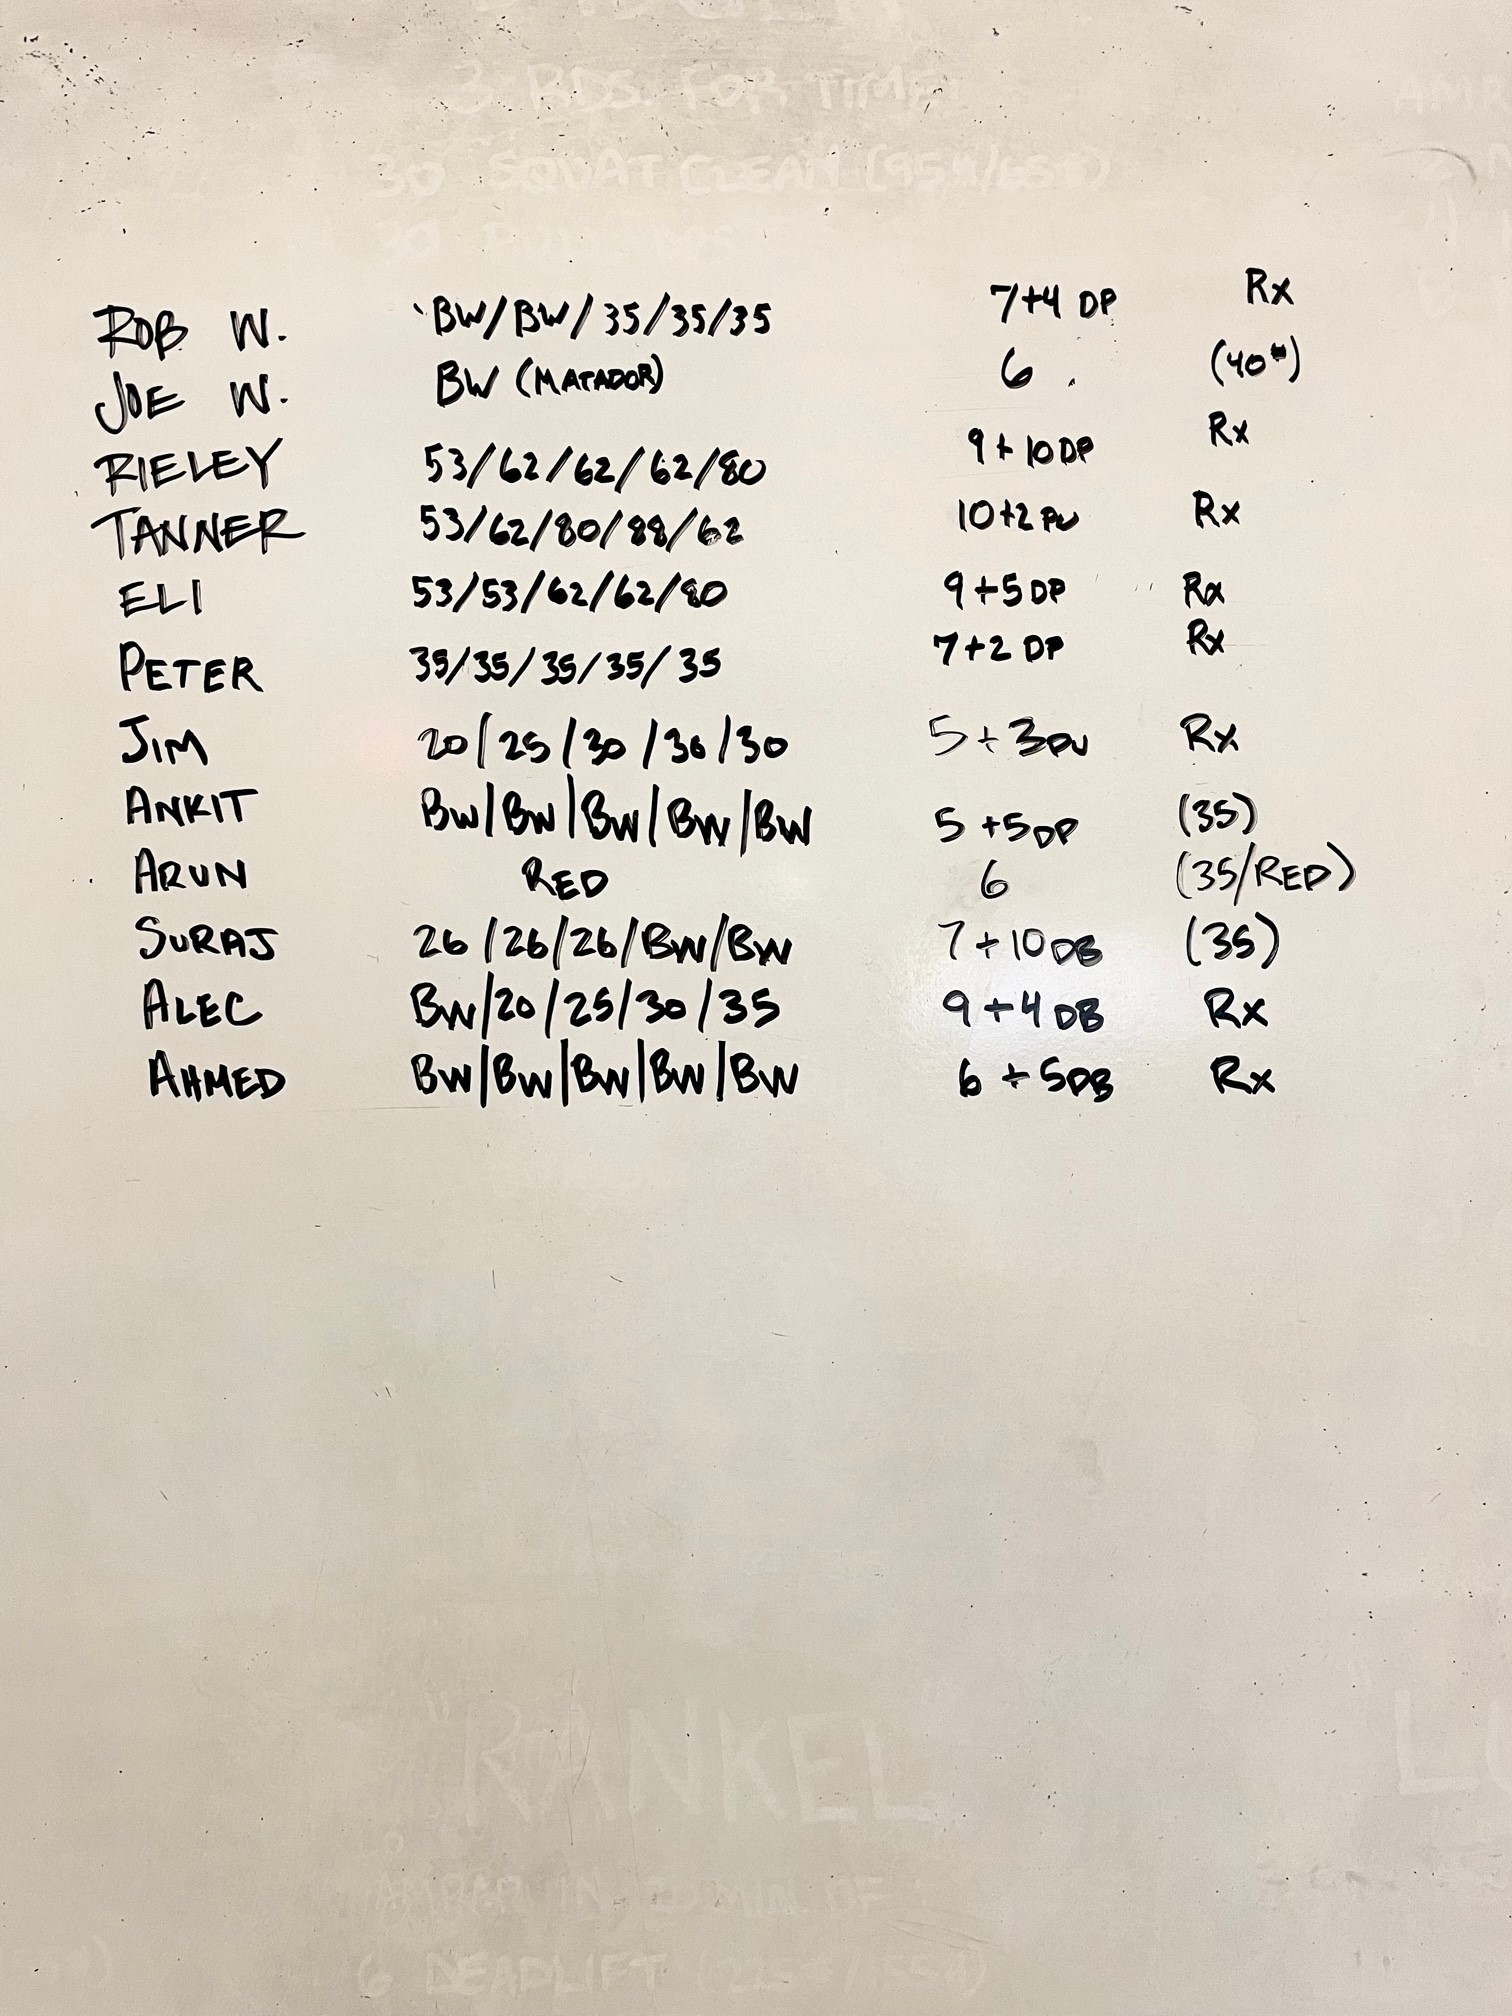 3 RDS. FOR TIME
30 SQUAT CLEAN (95#/65#)
30
ROB W. BW/BW/35/35/35 7+4 DP Rx
JOE W. BW (MATADOR) 6 (40#)
RIELEY 53/62/62/62/80 9+10DP Rx
TANNER 53/62/80/88/62 10+2 PU Rx
ELI 53/53/62/62/80 9+5 DP Rx
PETER 35/35/35/35/35 7+2 DP Rx
JIM 20/25/30/30/30 5+3PU Rx
ANKIT BW/BW/BW/BW/BW 5+5DP (35)
ARUN RED 6 (35/RED)
SURAJ 26/26/26/BW/BW 7+10DB (35)
ALEC BW/20/25/30/35 9+4DB Rx
AHMED BW/BW/BW/BW/BW 6+5DB Rx
"RANKEL"
AMRAP IN 20 MIN. OF:
6 DEADLIFT